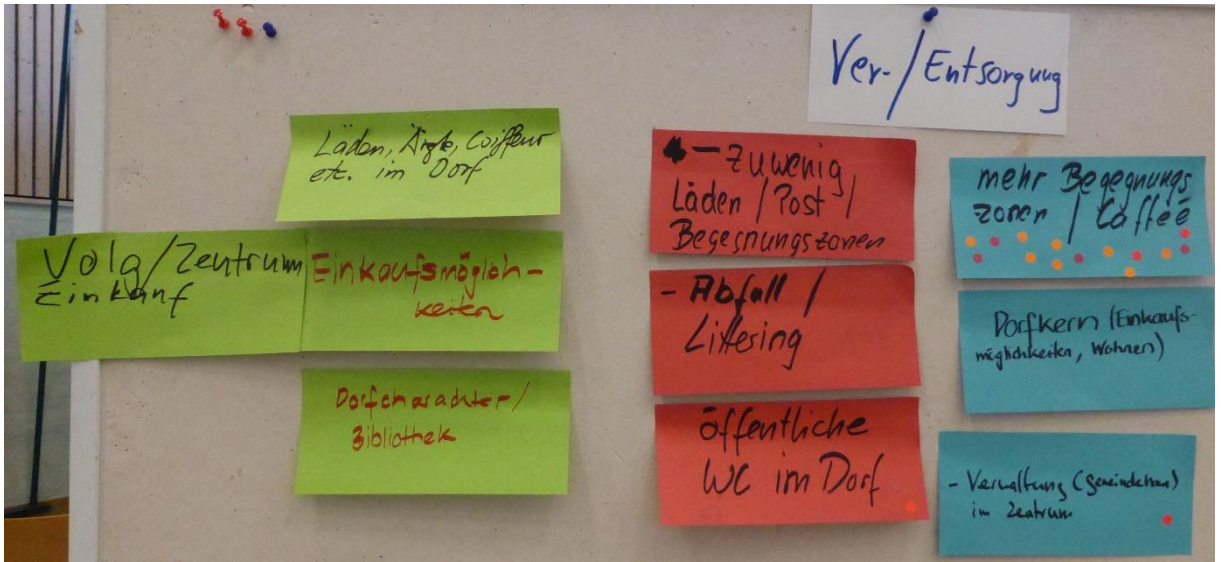 Ver-/Entsorgung
Läden, Ärzte, Coiffeur
etc. im Dorf
Volg/Zentrum
Einkauf
Einkaufsmöglich-
keiten
Dorfcharackter/
Bibliothek
- Zuwenig
Läden / Post /
Begegnungszonen
- Abfall /
Littering
öffentliche
WC im Dorf
mehr Begegnungs
zonen / Caffeé
Dorfkern (Einkaufs-
möglichkeiten, Wohnen)
- Verwaltung (Gemeindehaus)
im Zentrum